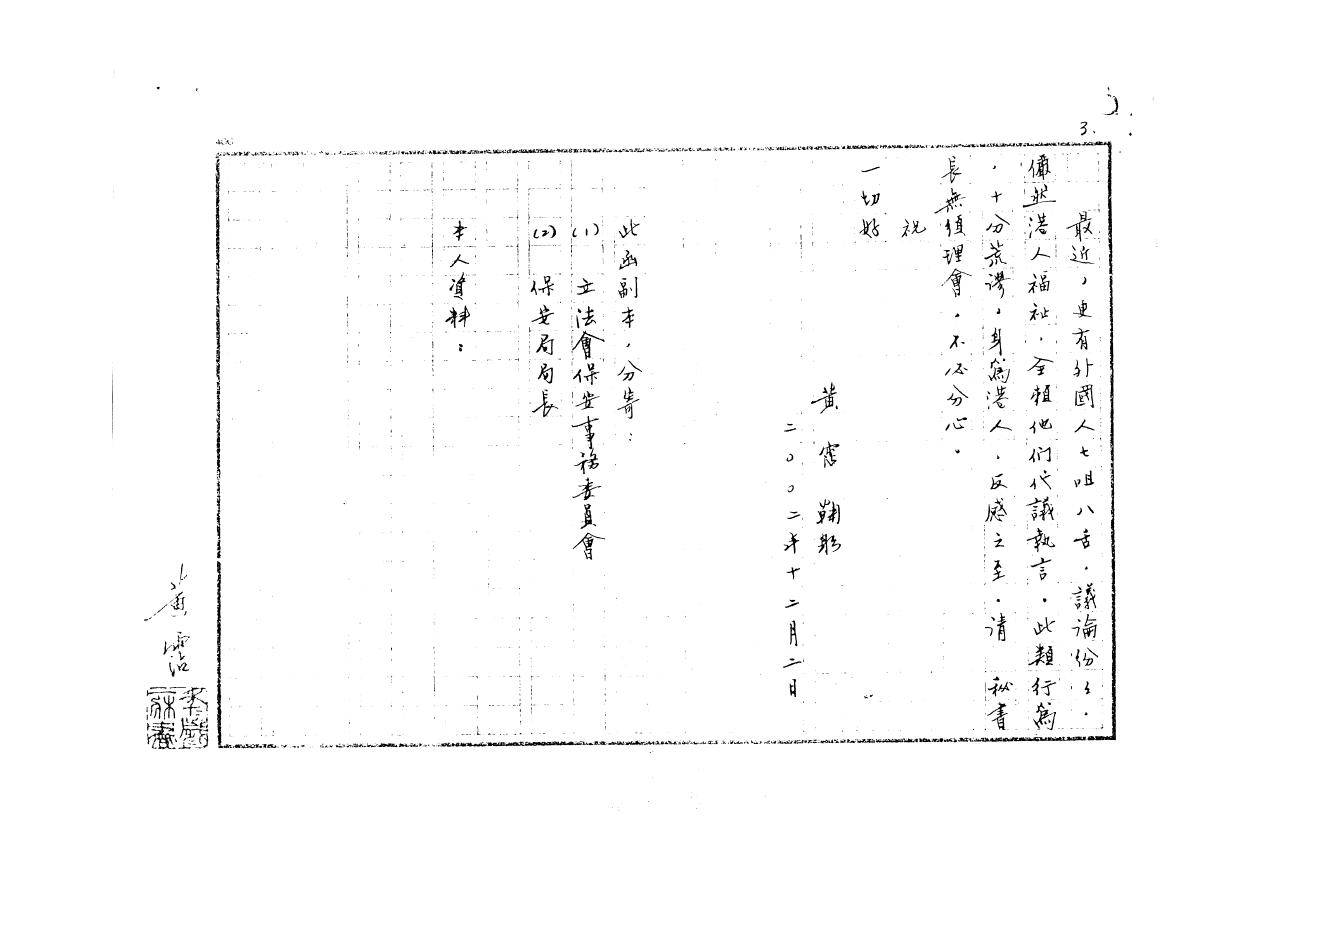 3.
最近，更有外國人七咀八舌，議論份々，
儼然港人福祉，全賴他們代議執言。此類行為
，十分荒謬，身為港人，反感之至。請 秘書
長無須理會，不必分心。
祝
一切好
黃霑 鞠躬
二００二年十二月二日
此函副本，分寄：
(1) 立法會保安事務委員會
(2) 保安局局長
本人資料：
黃霑